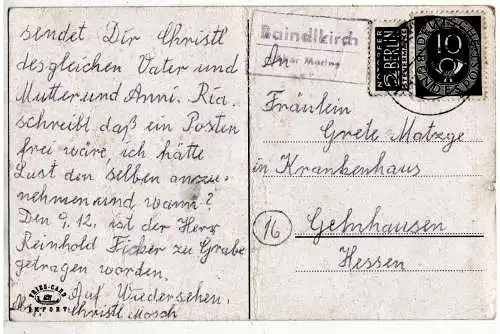 sendet Dir Christl
desgleichen Vater und
Mutter und Anni. Ria
schreibt daß ein Posten
frei wäre, ich hätte
Lust den selben anzu-
nehmen und wann?
Den 9.12. ist der Herr
Reinhold Ficker zu Grabe
getragen worden.
Auf Wiedersehen.
Christl Mosch
KRIEG-CARD
EXPORT
Baindlkirch
über Mering
An
Fräulein
Grete Matzge
in Krankenhaus
16
Gelnhausen
Hessen
NOTOPFER
2 BERLIN
STEUERMARKE
10
DEUTSCHE BUNDESPOST